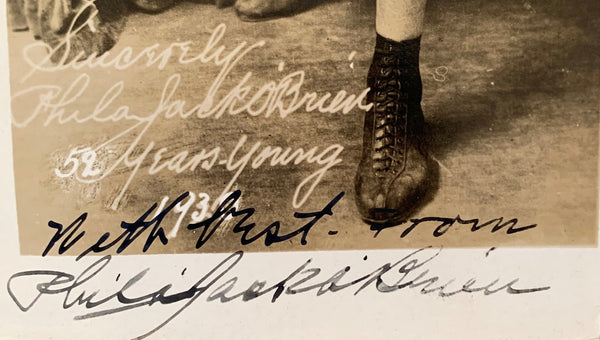 Sincerely
Phila Jack O'Brien
52 Years Young
With best. From
Phila Jack O'Brien